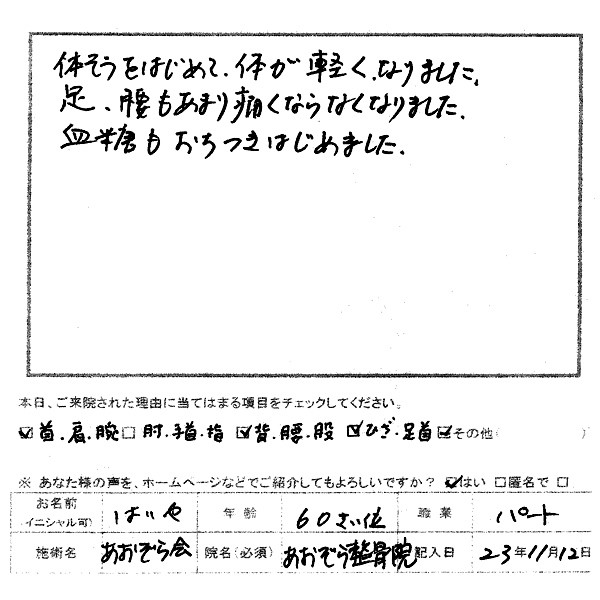 体そうをはじめて、体が軽くなりました。
足、腰もあまり痛くならなくなりました。
血糖もおちつきはじめました。
本日、ご来院された理由に当てはまる項目をチェックしてください。
☑首・肩・腕 □肘・手首・指 ☑背・腰・股 ☑ひざ・足首 ☑その他( )
※ あなた様の声を、ホームページなどでご紹介してもよろしいですか? ☑はい □匿名で □
お名前(イニシャル可) はいや 年齢 60さい位 職業 パート
施術名 あおぞら会 院名(必須) あおぞら整骨院 記入日 23年11月12日